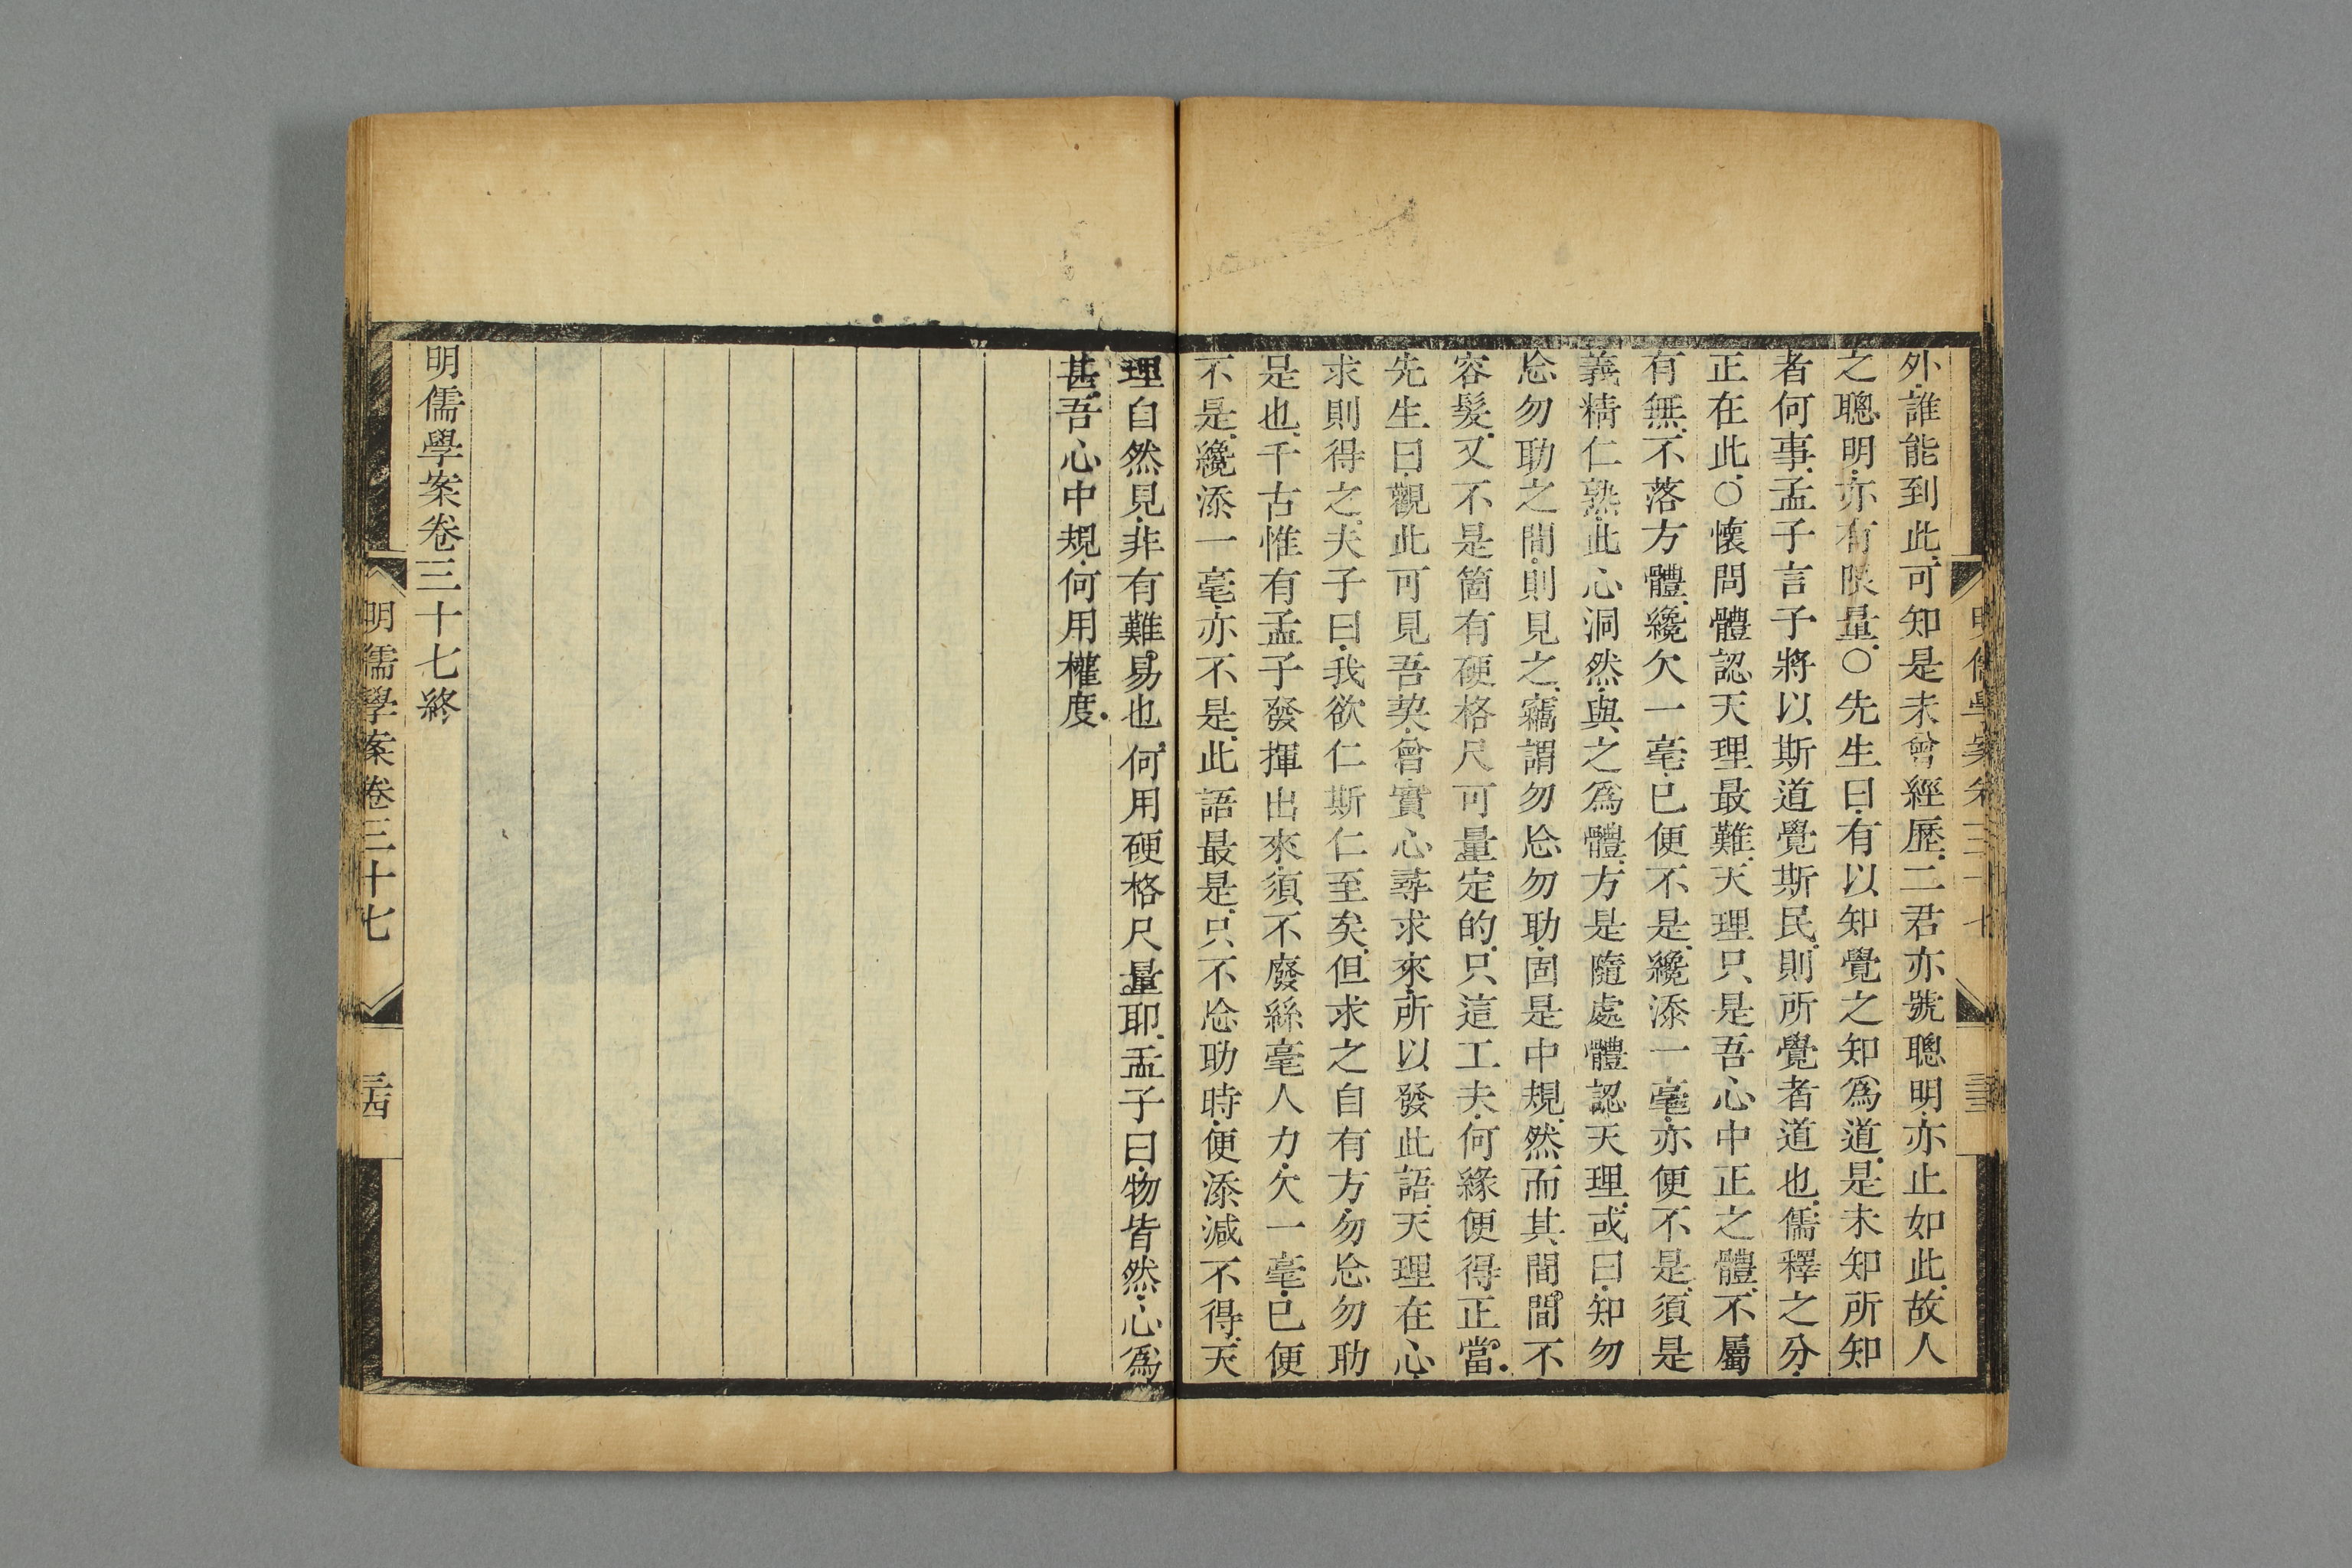 外誰能到此可知是未曾經歷二君亦號聰明亦止如此故人
之聰明亦有限量○先生曰有以知覺之知爲道是未知所知
者何事孟子言予將以斯道覺斯民則所覺者道也儒釋之分
正在此○懷問體認天理最難天理只是吾心中正之體不屬
有無不落方體纔欠一毫已便不是纔添一毫亦便不是須是
義精仁熟此心洞然與之爲體方是隨處體認天理或曰知勿
忘勿助之間則見之竊謂勿忘勿助固是中規然而其間間不
容髮又不是箇有硬格尺可量定的只這工夫何緣便得正當
先生曰觀此可見吾契曾實心尋求來所以發此語天理在心
求則得之夫子曰我欲仁斯仁至矣但求之自有方勿忘勿助
是也千古惟有孟子發揮出來須不廢絲毫人力欠一毫已便
不是纔添一毫亦不是此語最是只不忘助時便添減不得天
理自然見非有難易也何用硬格尺量耶孟子曰物皆然心爲
甚吾心中規何用權度
明儒學案卷三十七終
明儒學案卷三十七